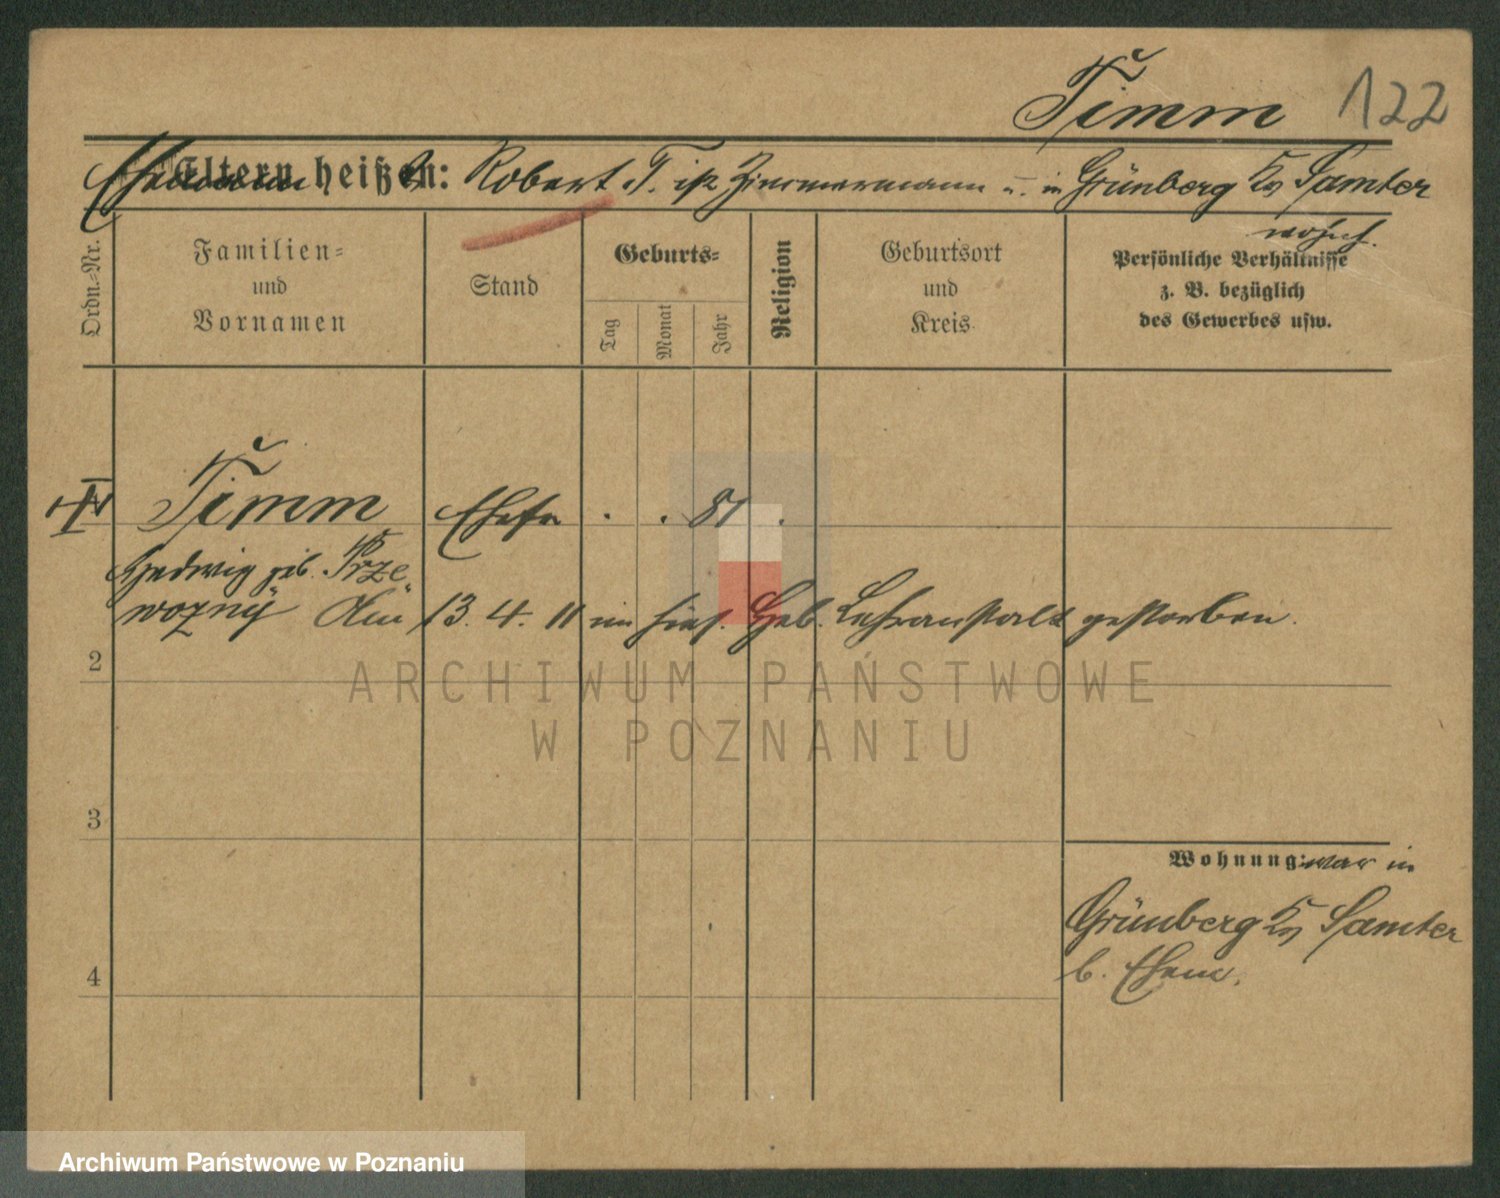 Timm 122
Ehemann Eltern heißen: Robert T. ist Zimmermann u. in Grünberg Kr Samter
wohnh.
Ordn.-Nr.
Familien-
und
Vornamen
Stand
Geburts-
Tag
Monat
Jahr
Religion
Geburtsort
und
Kreis
Persönliche Verhältnisse
z. B. bezüglich
des Gewerbes usw.
Timm Ehefr . . 81 .
Hedwig geb. Prze-
wozny Am 13. 4. 11 im hies. Heb. Lehranstalt gestorben.
2
ARCHIWUM PAŃSTWOWE
W POZNANIU
3
Wohnung: war in
Grünberg Kr Samter
b. Ehem.
4
Archiwum Państwowe w Poznaniu